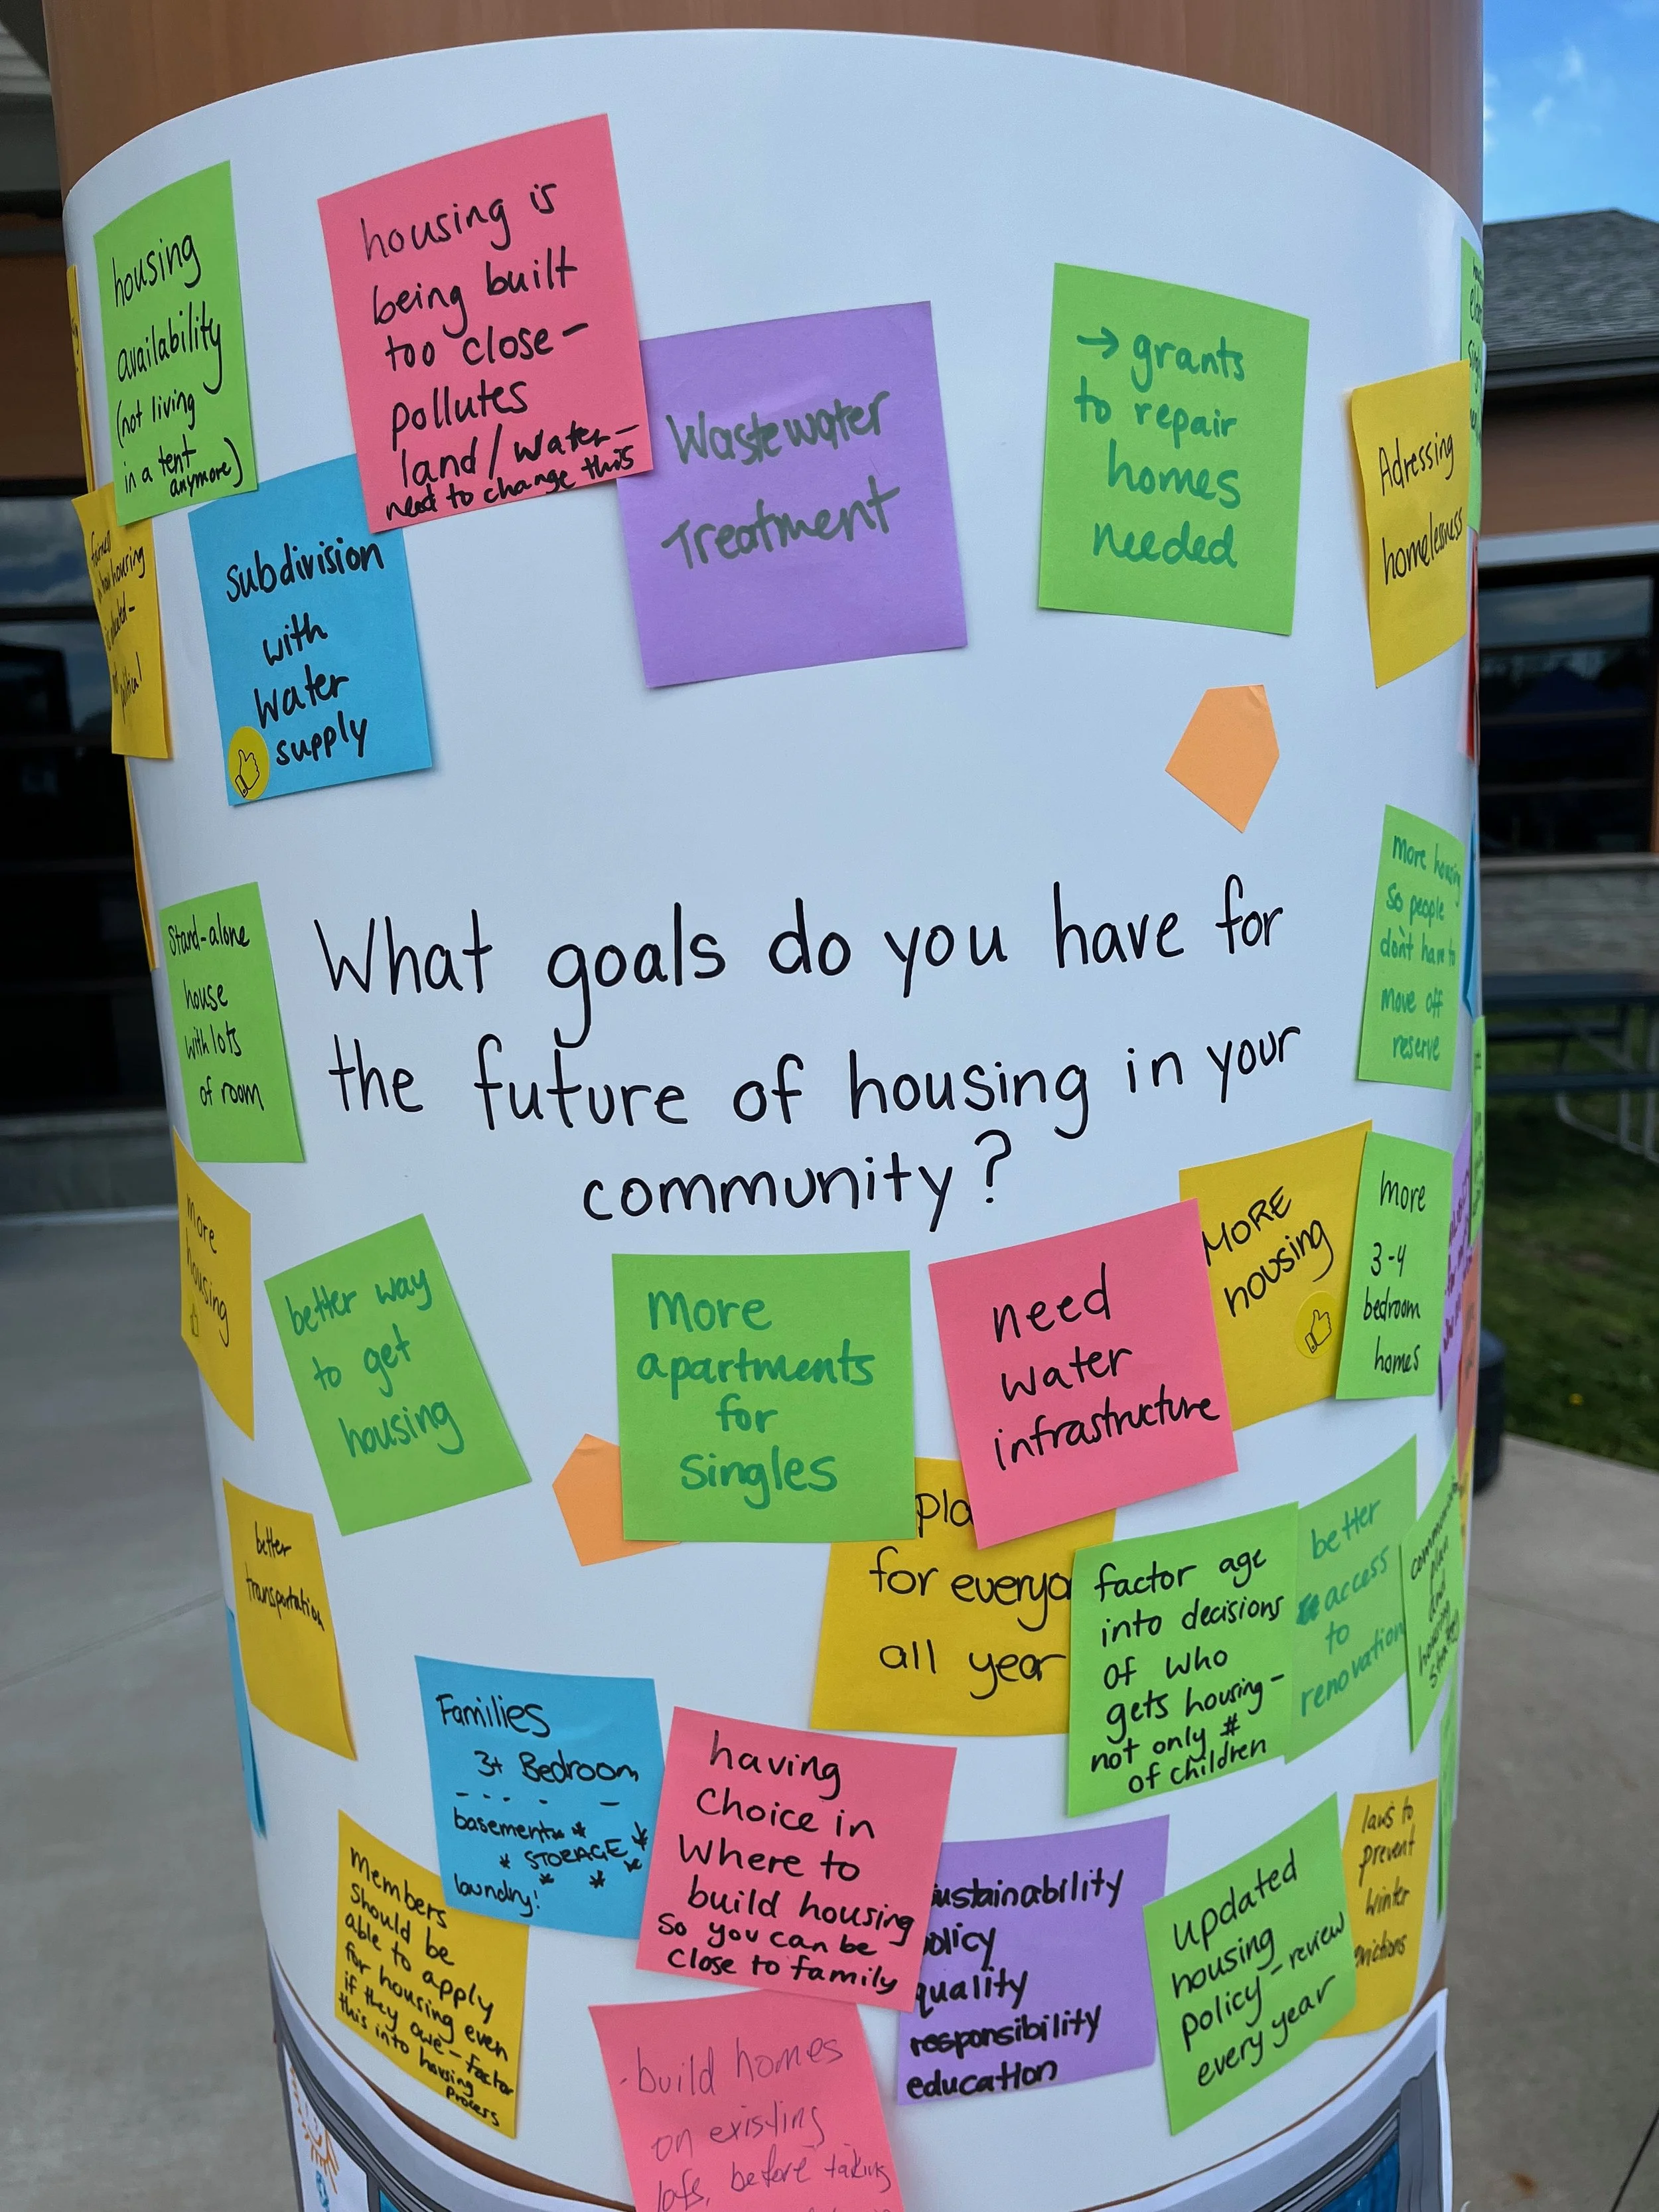 housing
availability
(not living
in a tent
anymore)
housing is
being built
too close-
pollutes
land/water-
need to change this
Wastewater
Treatment
→ grants
to repair
homes
needed
Adressing
homelessness
housing
political
Subdivision
with
water
supply
What goals do you have for
the future of housing in your
community?
Stand-alone
house
with lots
of room
more housing
so people
don't have to
move off
reserve
more
housing
better way
to get
housing
more
apartments
for
singles
need
water
infrastructure
MORE
housing
more
3-4
bedroom
homes
better
transportation
pla
for everyo
all year
factor age
into decisions
of who
gets housing-
not only #
of children
better
access
to
renovation
community
plan
and
housing
Families
3+ Bedroom
basement
* STORAGE *
laundry!
having
choice in
where to
build housing
so you can be
close to family
ustainability
olicy
quality
responsibility
education
updated
housing
policy-review
every year
laws to
prevent
winter
evictions
Members
should be
able to apply
for housing even
if they owe-factor
this into housing
process
-build homes
on existing
lots, before taking